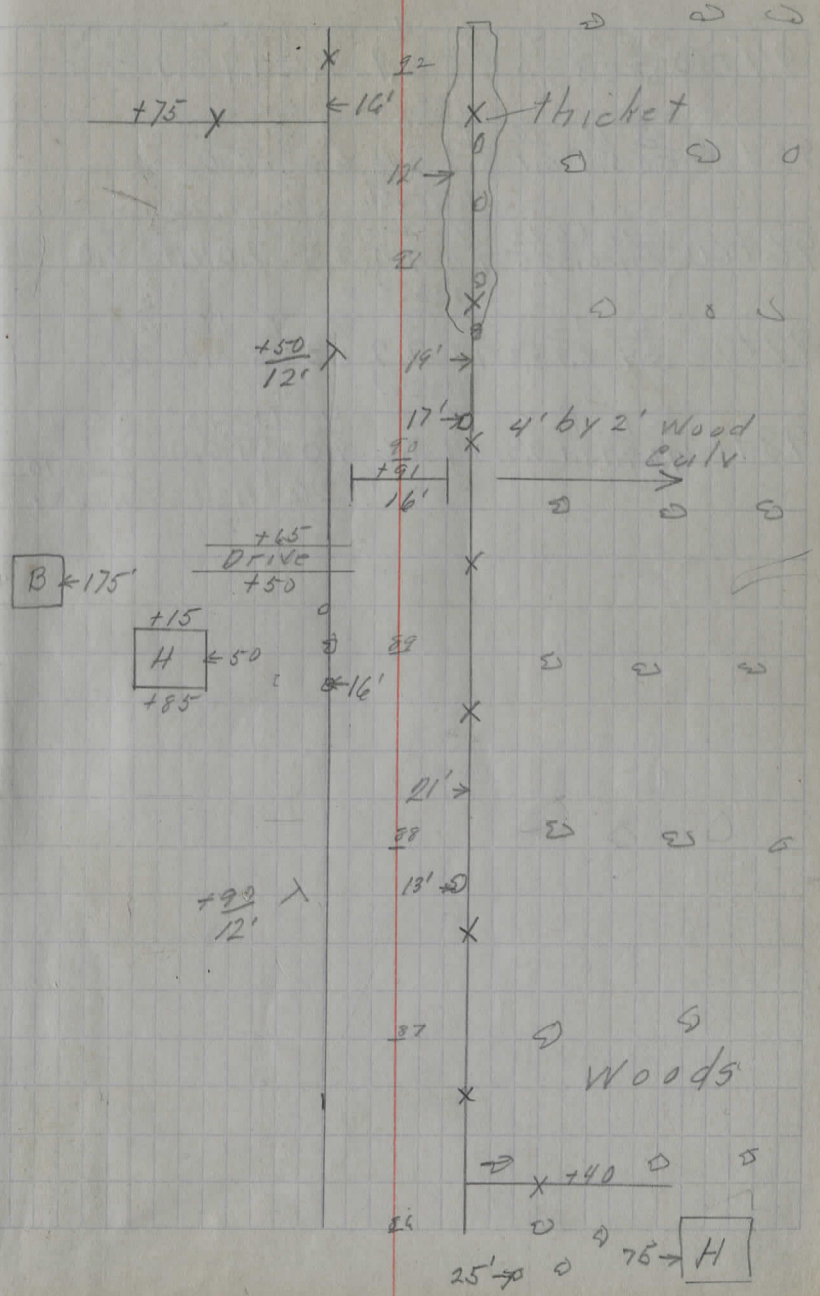 92
+75
←16'
thicket
12'→
91
+50
12'
19'→
17'→
4' by 2' Wood
Culv.
90
+91
16'
+65
Drive
+50
B ←175'
+15
H ←50
+85
89
←16'
21'→
88
+90
12'
13'→
87
Woods
+40
86
25'→
75→ H